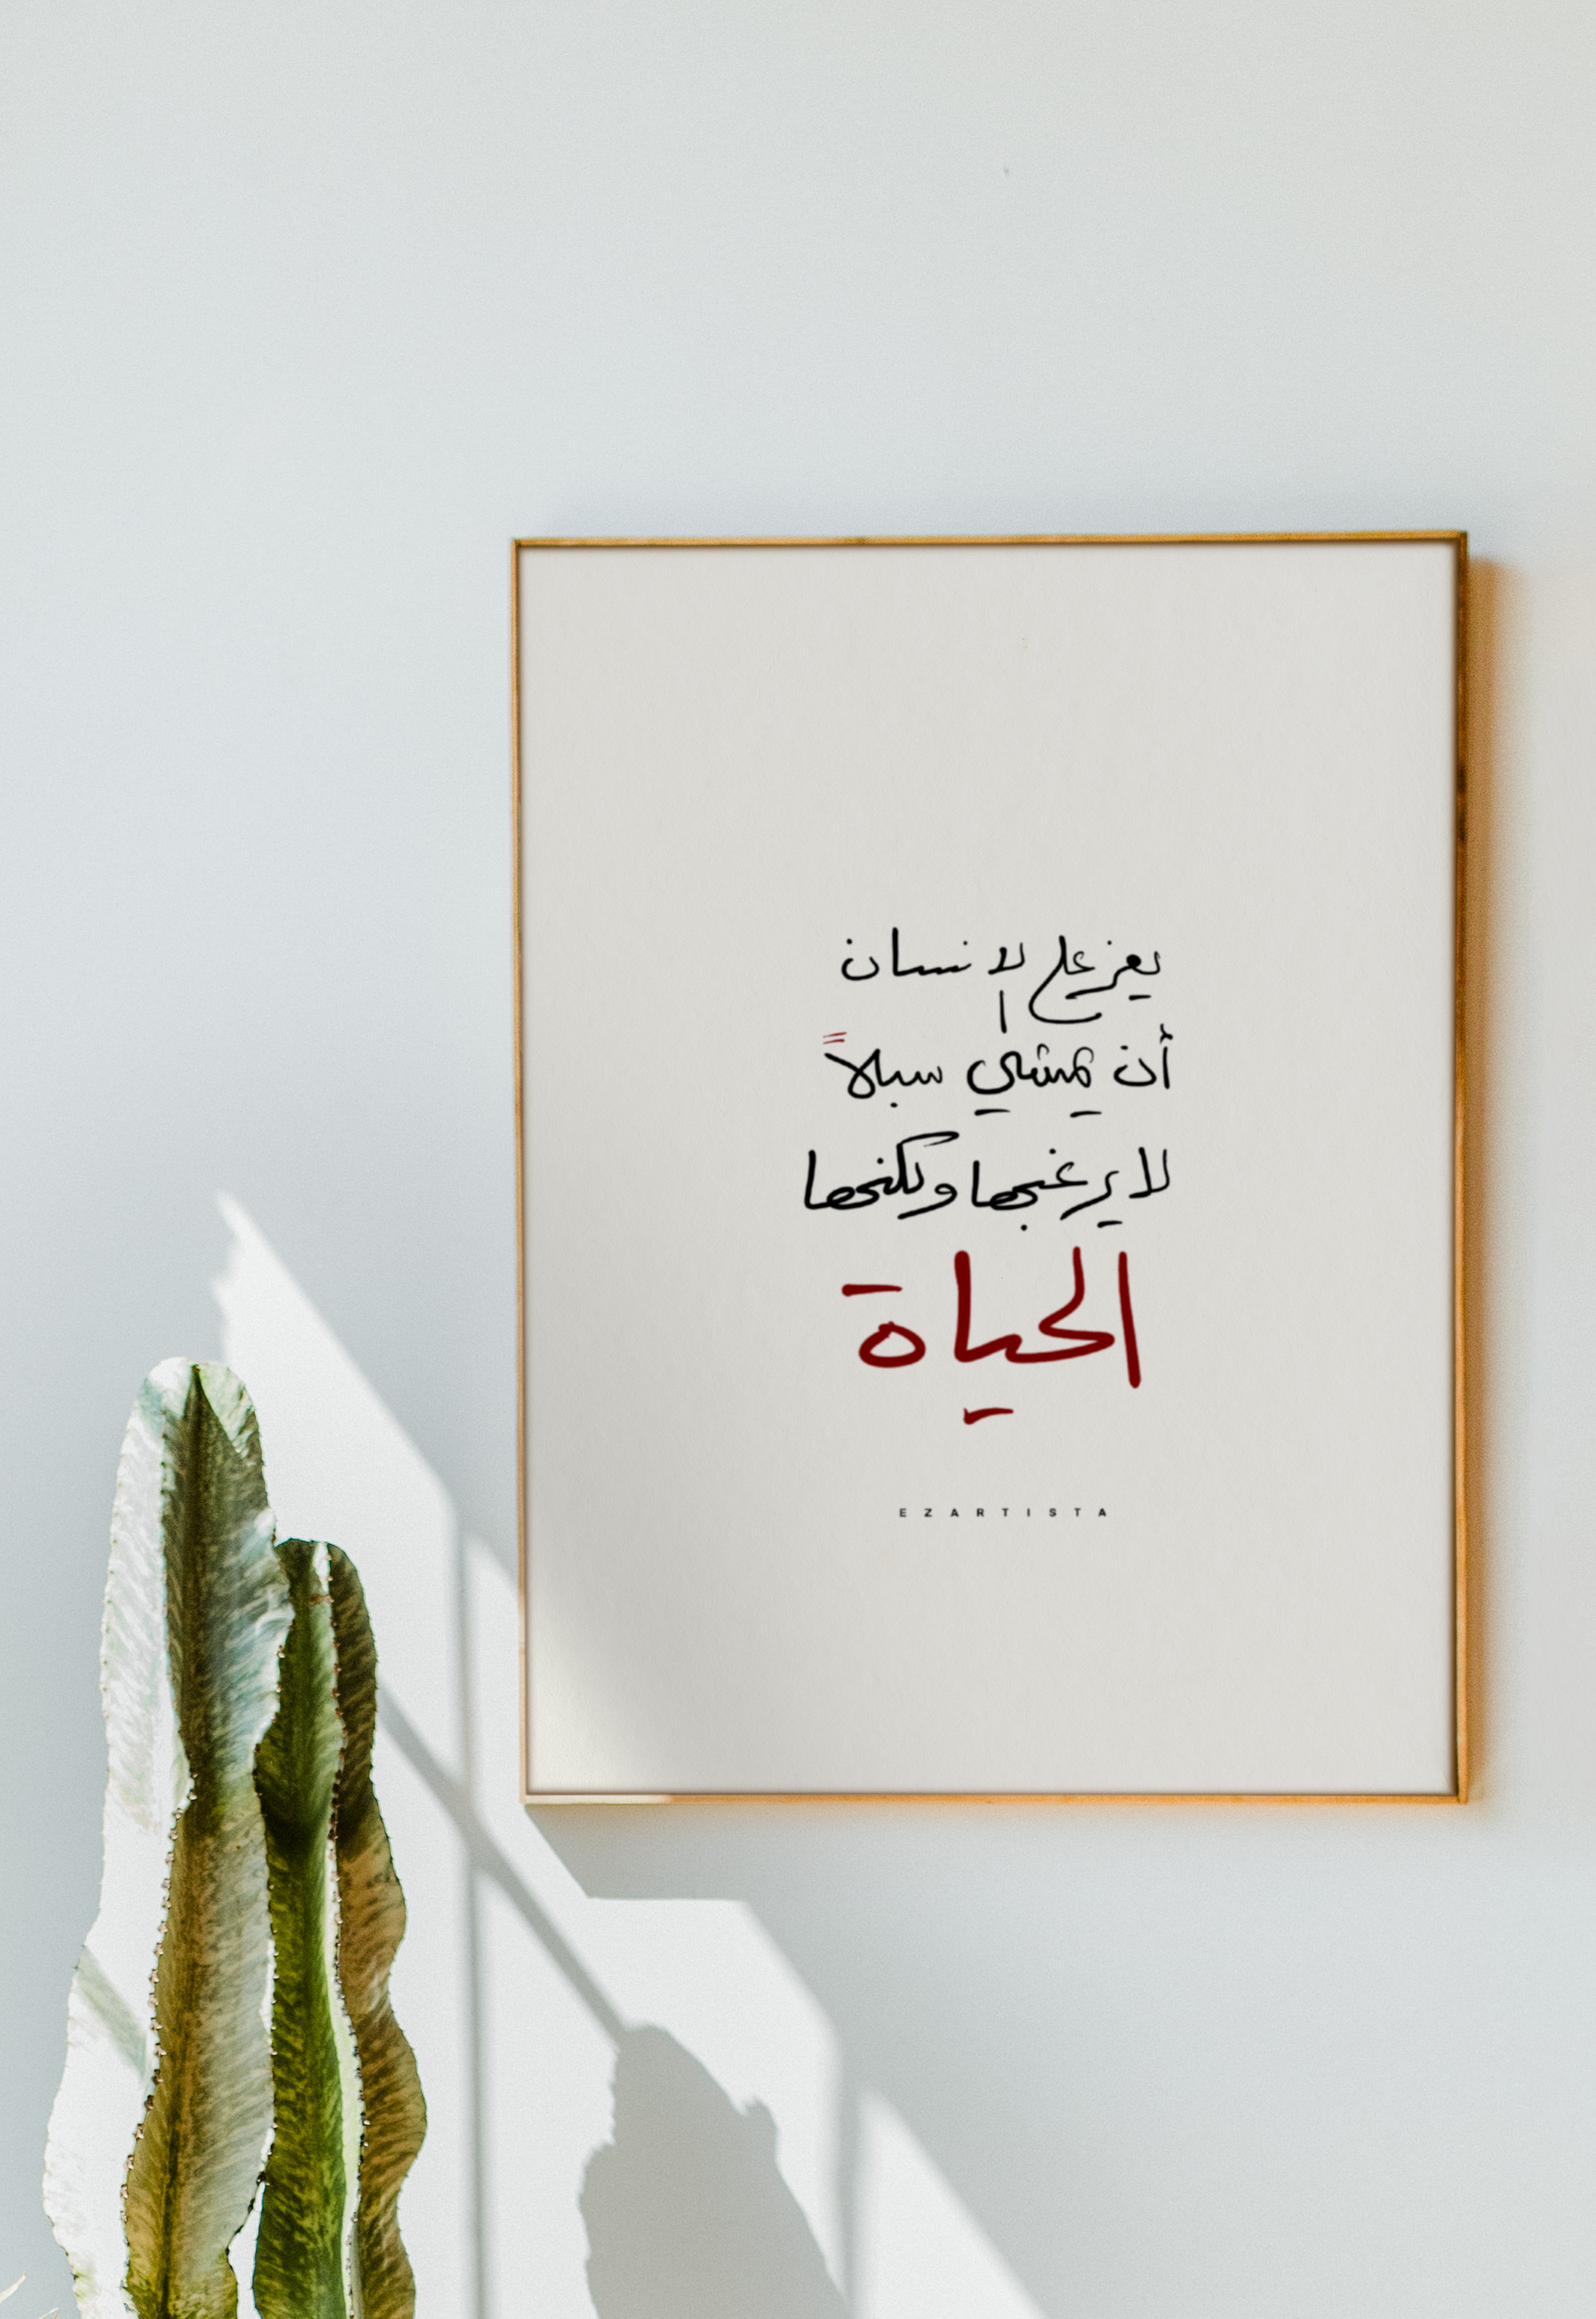 يعز على الانسان
أن يمشي سبلاً
لا يرغبها ولكنها
الحياة
EZARTISTA